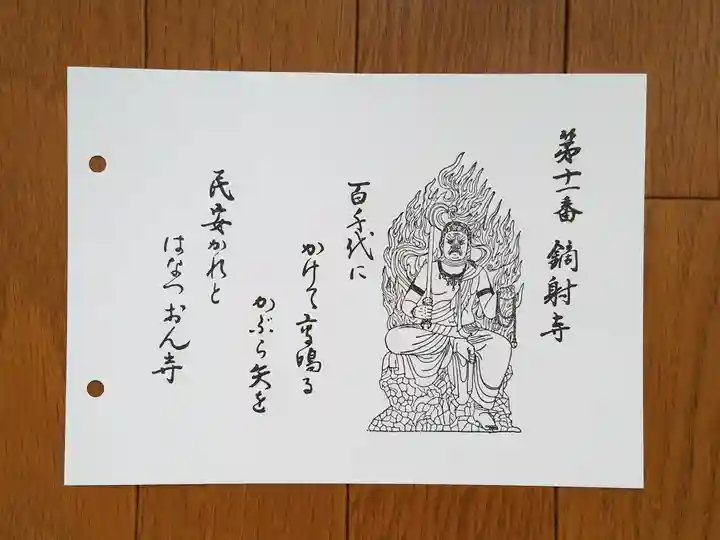 第十一番 鏑射寺
百千代に
かけて高鳴る
かぶら矢を
民安かれと
はなつおん寺